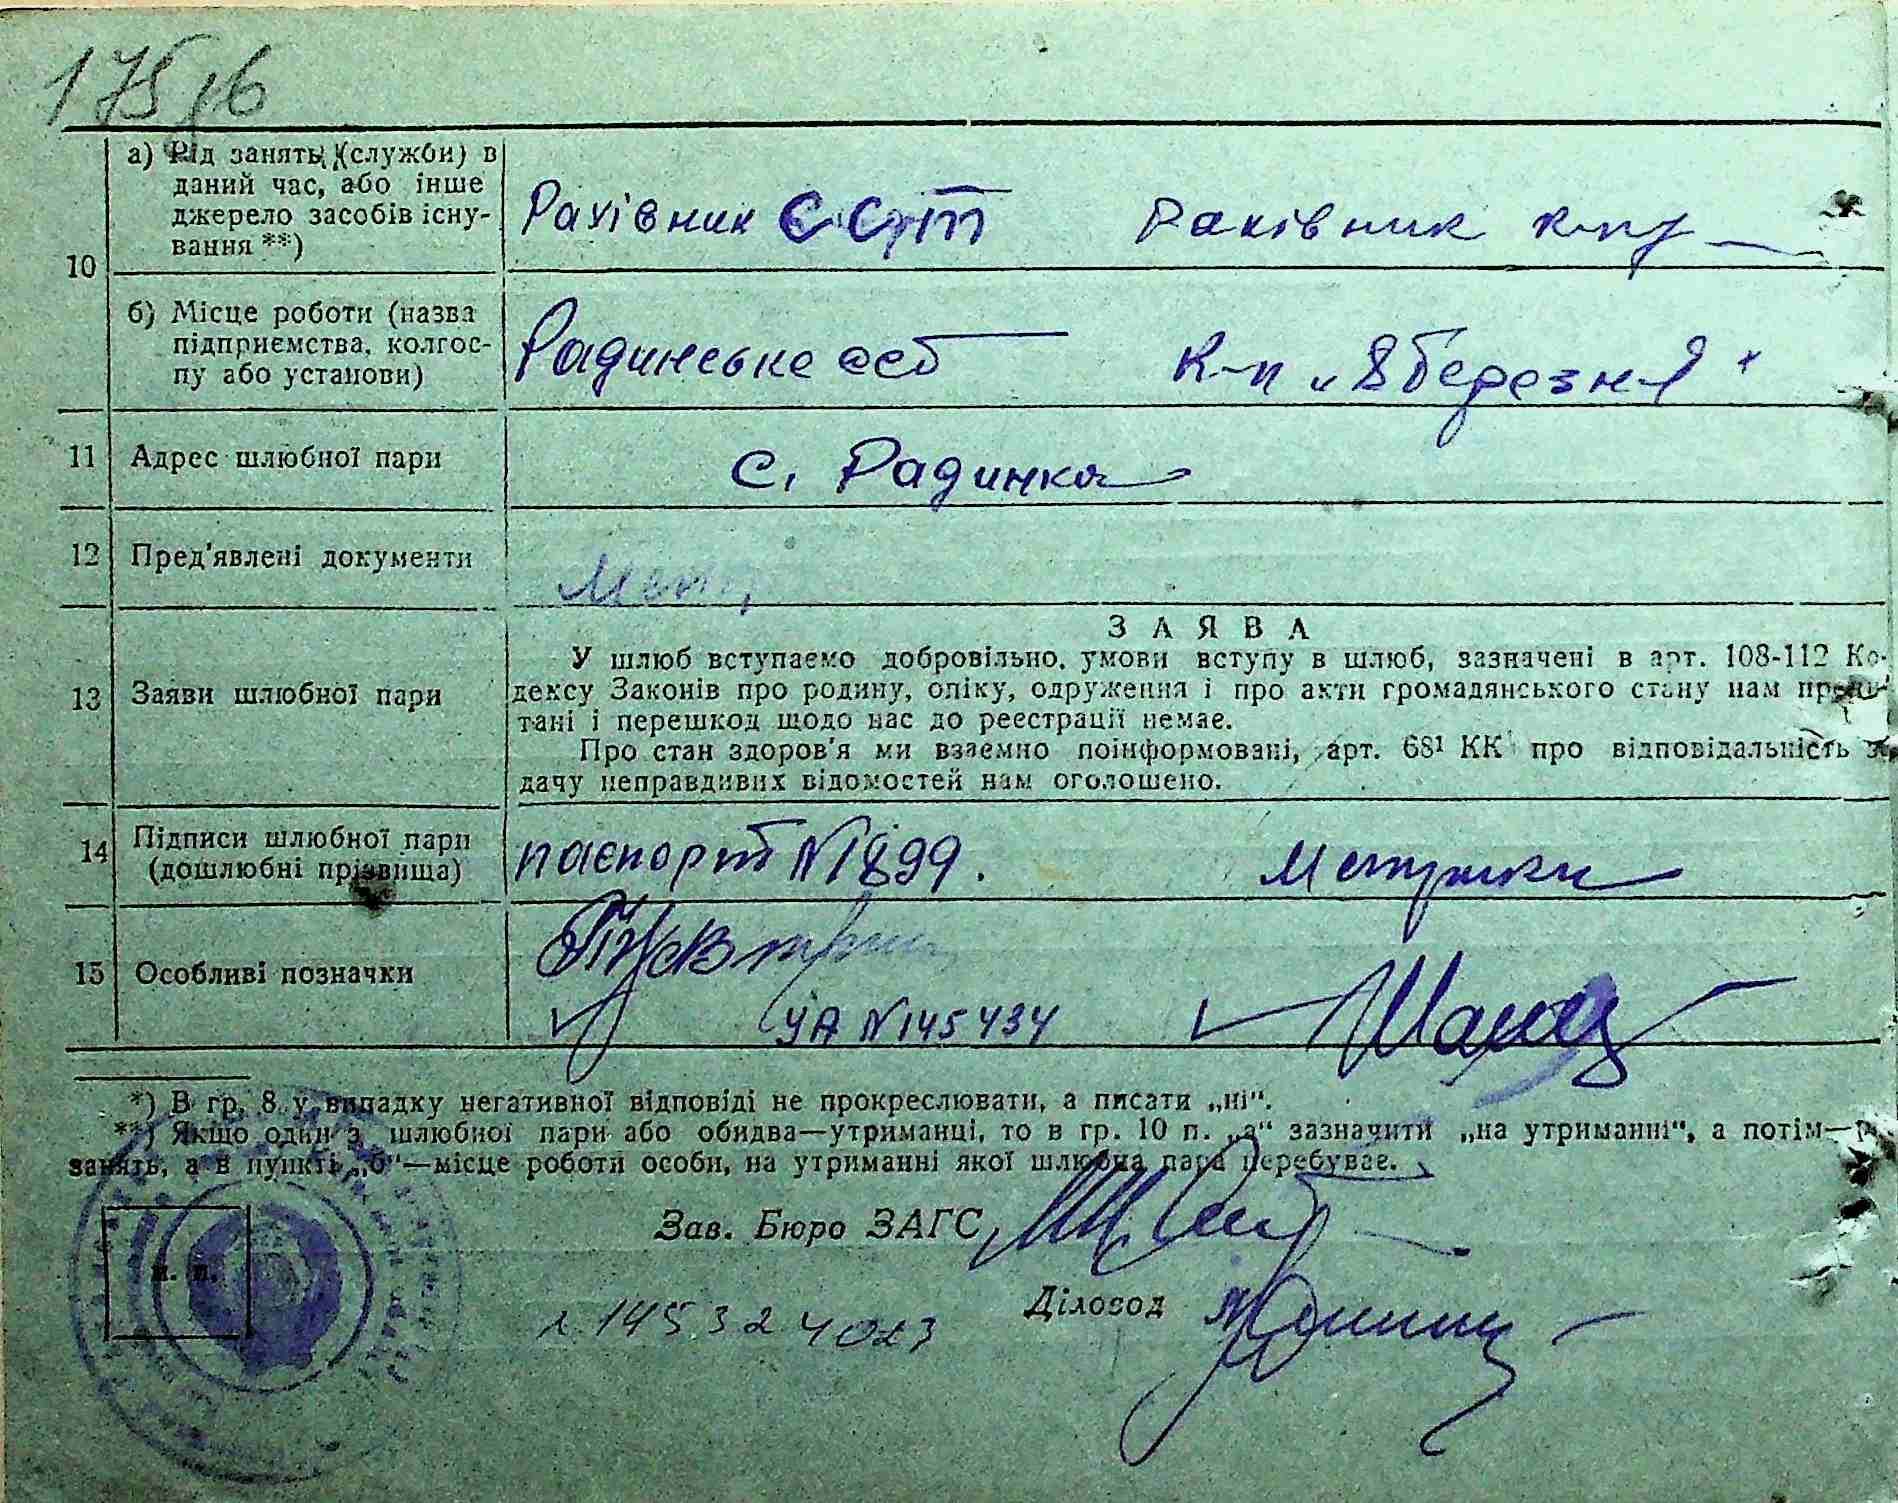 175
10
а) Рід занять (служби) в
даний час, або інше
джерело засобів існу-
вання **)
Рахівник Рахівник к-пу
б) Місце роботи (назва
підприємства, колгос-
пу або установи)
Радинське к-п „8 березня"
11 Адрес шлюбної пари
с. Радинка
12 Пред'явлені документи
13 Заяви шлюбної пари
ЗАЯВА
У шлюб вступаємо добровільно, умови вступу в шлюб, зазначені в арт. 108-112 Ко-
дексу Законів про родину, опіку, одруження і про акти громадянського стану нам
тані і перешкод щодо нас до реєстрації немає.
Про стан здоров'я ми взаємно поінформовані, арт. 68¹ КК про відповідальність
дачу неправдивих відомостей нам оголошено.
14 Підписи шлюбної пари
(дошлюбні прізвища)
паспорт № 1899.
15 Особливі позначки
УА №145434
*) В гр. 8 у випадку негативної відповіді не прокреслювати, а писати „ні".
**) Якщо один з шлюбної пари або обидва—утриманці, то в гр. 10 п. „а" зазначити „на утриманні", а потім—
занять, а в пункті „б"—місце роботи особи, на утриманні якої шлюбна пара перебуває.
Зав. Бюро ЗАГС
Діловод
145324023